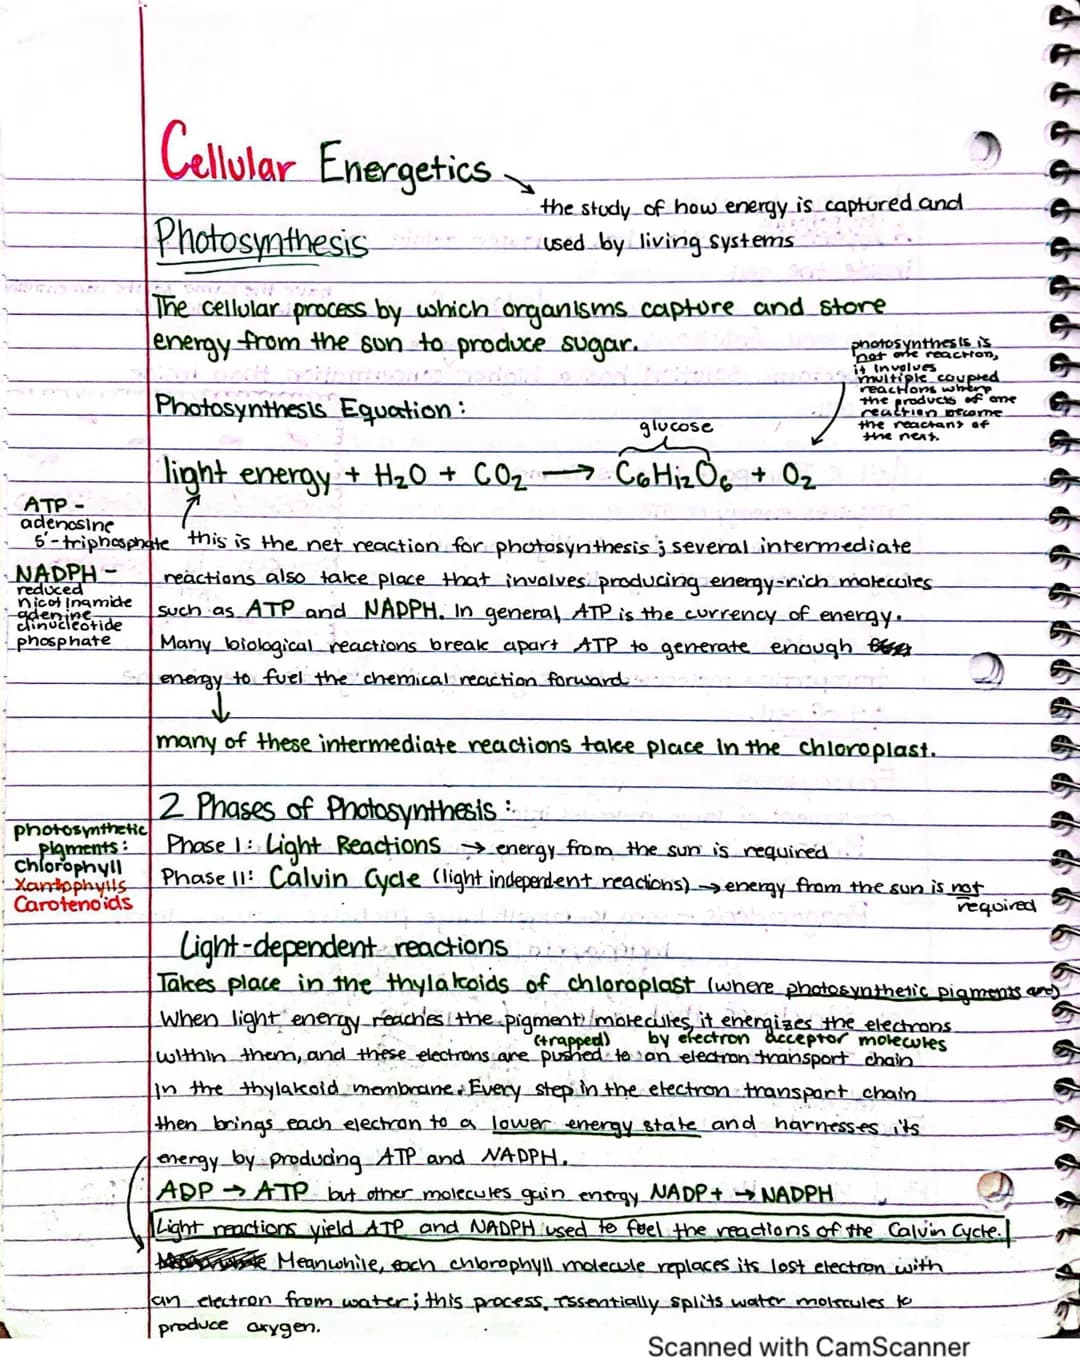 Cellular Energetics
the study of how energy is captured and
used by living systems
Photosynthesis
The cellular process by which organisms capture and store
energy from the sun to produce sugar.
photosynthesis is
not one reaction,
it involves
multiple coupled
reactions where
the products of one
reaction become
the reactants of
the next.
Photosynthesis Equation:
glucose
light energy + H2O + CO2 → C6H12O6 + O2
ATP -
adenosine
5'-triphosphate
NADPH -
reduced
nicotinamide
adenine
dinucleotide
phosphate
this is the net reaction for photosynthesis; several intermediate
reactions also take place that involves producing energy-rich molecules
such as ATP and NADPH. In general, ATP is the currency of energy.
Many biological reactions break apart ATP to generate enough
energy to fuel the chemical reaction forward
many of these intermediate reactions take place in the chloroplast.
2 Phases of Photosynthesis:
Phase I: Light Reactions → energy from the sun is required
Phase II: Calvin Cycle (light independent reactions) → energy from the sun is not
required
photosynthetic
pigments:
Chlorophyll
Xantophylls
Carotenoids
Light-dependent reactions
Takes place in the thylakoids of chloroplast (where photosynthetic pigments are)
When light energy reaches the pigment molecules, it energizes the electrons
(trapped) by electron acceptor molecules
within them, and these electrons are pushed to an electron transport chain
in the thylakoid membrane. Every step in the electron transport chain
then brings each electron to a lower energy state and harnesses its
energy by producing ATP and NADPH.
ADP → ATP but other molecules gain energy NADP+ → NADPH
Light reactions yield ATP and NADPH used to fuel the reactions of the Calvin Cycle.
Meanwhile, each chlorophyll molecule replaces its lost electron with
an electron from water; this process, essentially splits water molecules to
produce oxygen.
Scanned with CamScanner